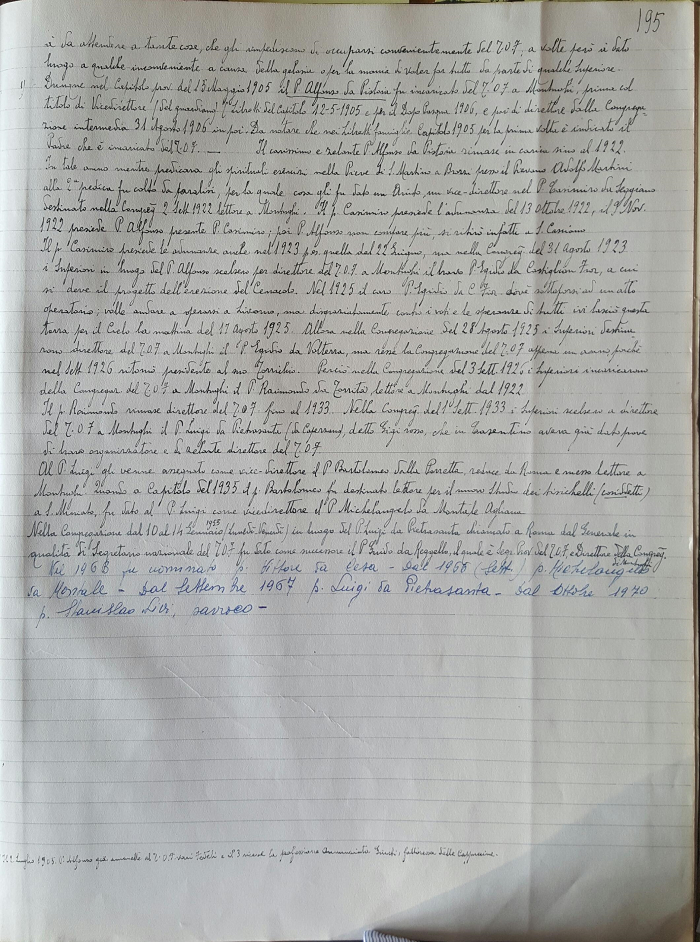 195
à da attendere a tante cose, che gli impediscono di occuparsi convenientemente del T.O.F., a volte però à dato
luogo a qualche inconveniente a causa della gelosia o per la mania di voler far tutto da parte di qualche Superiore.
Dunque nel Capitolo prov. del 13 Maggio 1905 il P. Alfonso da Pistoia fu incaricato del T.O.F. a Montughi, prima col
titolo di Vicedirettore (del guardiano) Libretti del Capitolo 12-5-1905 e per il Dopo Pasqua 1906, e poi di direttore dalla Congrega-
zione intermedia 31 Agosto 1906 in poi. Da notare che nei Libretti famiglie Capitolo 1905 per la prima volta è indicato il
Padre che è incaricato del T.O.F. — Il carissimo e zelante P. Alfonso da Pistoia rimase in carica sino al 1922.
In tale anno mentre predicava gli spirituali esercizi nella Pieve di S. Martino a Brozzi presso il Pievano Adolfo Martini
alla 2ª predica fu colto da paralisi, per la quale cosa gli fu dato un aiuto, un vice-direttore nel P. Casimiro da
destinato nella Congreg. 2 Sett. 1922 lettore a Montughi. Il p. Casimiro presiede l'adunanza del 13 Ottobre 1922, il 9 Nov.
1922 presiede P. Alfonso presente P. Casimiro; poi P. Alfonso non compare più, si ritirò infatti a S. Casciano
Il p. Casimiro presiede le adunanze anche nel 1923 per quella del 22 Giugno, ma nella Congreg. del 31 Agosto 1923
i Superiori in luogo del P. Alfonso scelsero per direttore del T.O.F. a Montughi il bravo P. Egidio da Castiglion Fior., a cui
si deve il progetto dell'erezione del Cenacolo. Nel 1925 il caro P. Egidio da C. Fior. dovè sottoporsi ad un atto
operatorio; volle andare a operarsi a Livorno, ma disgraziatamente contro i voti e le speranze di tutti ivi lasciò questa
terra per il Cielo la mattina del 17 Agosto 1925. Allora nella Congregazione del 28 Agosto 1925 i Superiori destina
rono direttore del T.O.F. a Montughi il P. Egidio da Volterra, ma resse la Congregazione del T.O.F. appena un anno, poiché
nel Sett. 1926 ritornò penitente al suo Perciò nella Congregazione del 3 Sett. 1926 i Superiori incaricarono
della Congregaz. del T.O.F. a Montughi il P. Raimondo da Torrita, lettore a Montughi dal 1922.
Il p. Raimondo rimase direttore del T.O.F. fino al 1933. Nella Congreg. del 1º Sett. 1933 i Superiori scelsero a direttore
del T.O.F. a Montughi il P. Luigi da Pietrasanta (da Capezzano), detto Gigi rosso, che in Casentino aveva già dato prove
di bravo organizzatore e di zelante direttore del T.O.F.
Al P. Luigi gli venne assegnato come vice-direttore il P. Bartolomeo dalla Porretta, reduce da Roma e messo lettore a
Montughi. Quando a Capitolo del 1935 il p. Bartolomeo fu destinato lettore per il nuovo Studio dei fisichelli (cosidetti)
a S. Miniato, fu dato al P. Luigi come vicedirettore il P. Michelangelo da Montale Agliana
Nella Congregazione dal 10 al 14 Gennaio 1953 (Lunedì-Venerdì) in luogo del P. Luigi da Pietrasanta chiamato a Roma dal Generale in
qualità di Segretario nazionale del T.O.F. fu dato come successore il P. Guido da Reggello, il quale è Segr. Prov. del T.O.F. e Direttore della Congreg.
di Montughi
Nel 1963 fu nominato p. Ettore da Cesa - Dal 1966 (Sett.) p. Michelangelo
da Montale - Dal settembre 1967 p. Luigi da Pietrasanta - Dal Ottobre 1970
p. Stanislao Livi, parroco -
Il 2 Luglio 1905 P. Alfonso già ammette al T.O.F. vari Fedeli e il 3 riceve la professione Annunziata fattoressa delle Cappuccine.